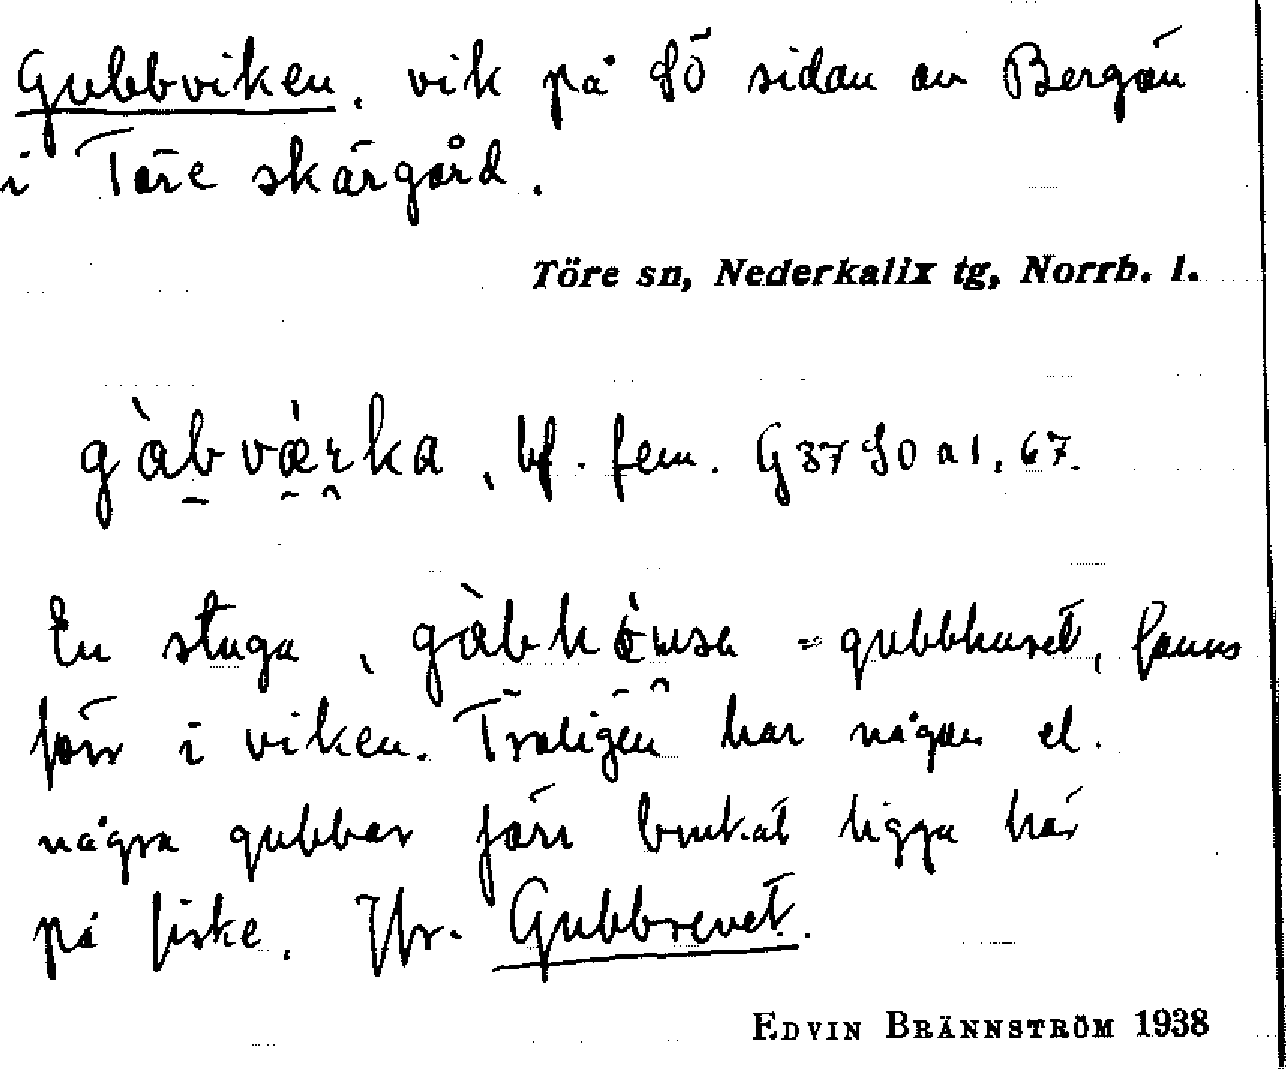 Gubbviken, vik på SÖ sidan av Bergön
i Töre skärgård.
Töre sn, Nederkalix tg, Norrb. l.
gàbvæ̀rka, bf. fem. G 37 SO a 1, 67.
En stuga, = gubbhuset, fanns
förr i viken. Troligen har någon el.
några gubbar förr brukat ligga här
på fiske. Jfr. Gubbrevet.
EDVIN BRÄNNSTRÖM 1938